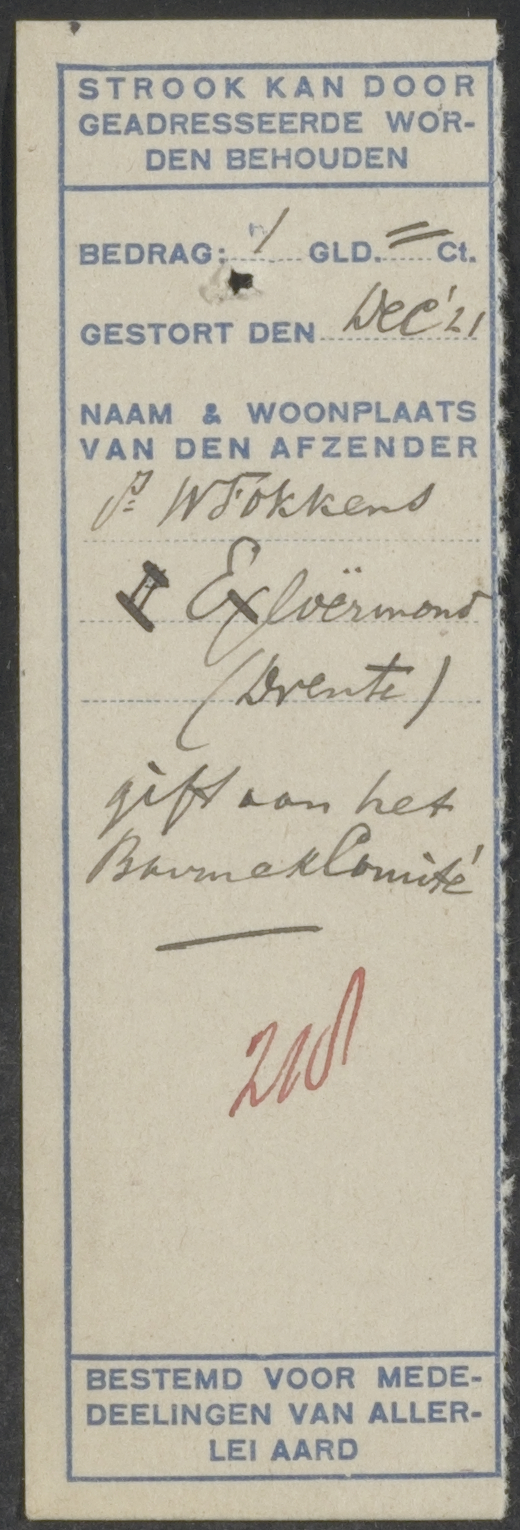 STROOK KAN DOOR
GEADRESSEERDE WOR-
DEN BEHOUDEN
BEDRAG: 1 GLD. = Ct.
GESTORT DEN Dec '21
NAAM & WOONPLAATS
VAN DEN AFZENDER
W Fokkens
Exloërmond
(Drente)
gift aan het
Comité
BESTEMD VOOR MEDE-
DEELINGEN VAN ALLER-
LEI AARD